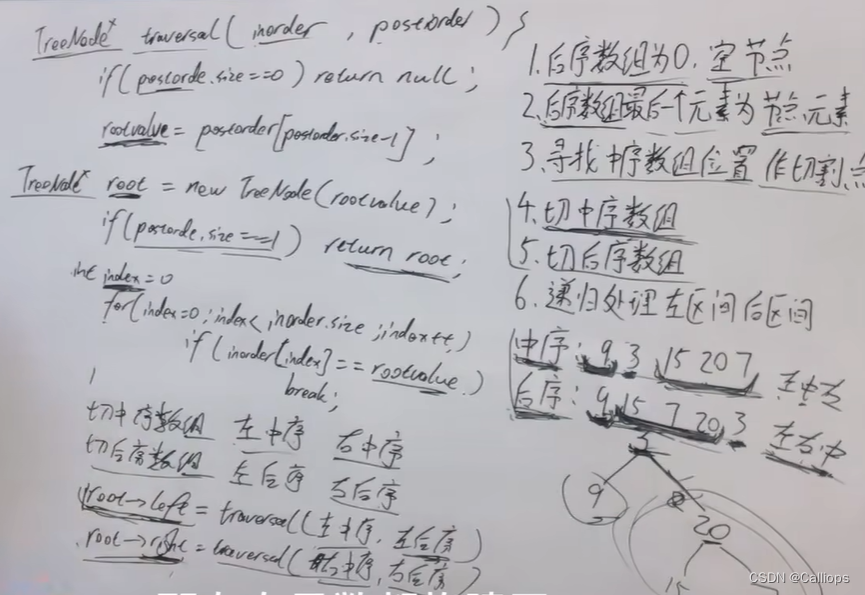 TreeNode* traversal( inorder , postorder ) {
if( postorde.size==0 ) return null ;
rootvalue = postorder[postorder.size-1] ;
TreeNode* root = new TreeNode(rootvalue) ;
if( postorde.size==1 ) return root ;
int index=0
for(index=0 ; index< inorder.size ; index++ )
if ( inorder[index] == rootvalue )
break ;
切中序数组 左中序 右中序
切后序数组 左后序 右后序
root->left = traversal( 左中序, 左后序 )
root->right = traversal( 右中序, 右后序 )
1.后序数组为0, 空节点
2.后序数组最后一个元素为节点元素
3.寻找中序数组位置 作切割点
4.切中序数组
5.切后序数组
6.递归处理左区间后区间
中序: 9 3 15 20 7 左中右
后序: 9 15 7 20 3 左右中
3
9
20
15
CSDN @Calliops